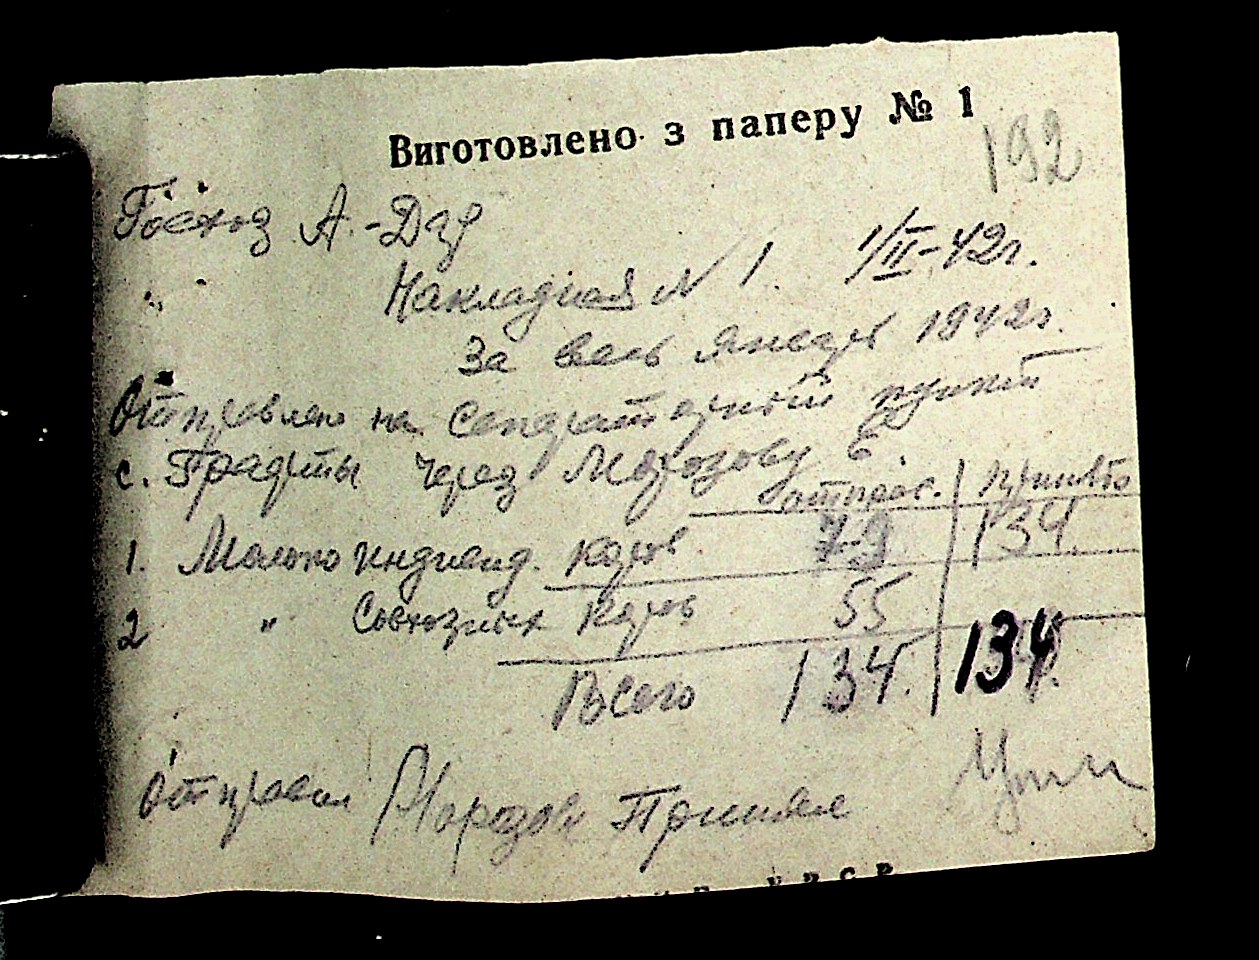 Виготовлено з паперу № 1
192
Госхоз А.-Дар
" Накладная N 1. 1/II-42г.
За весь январь 1942г.
Отправлено на сепараторный пункт
с. Традуты через Морозову Е.
отправ. принято
1. Молоко индивид. коров 79 134
2 " Совхозных коров 55
Всего 134. 134.
Отправил Морозов Принял